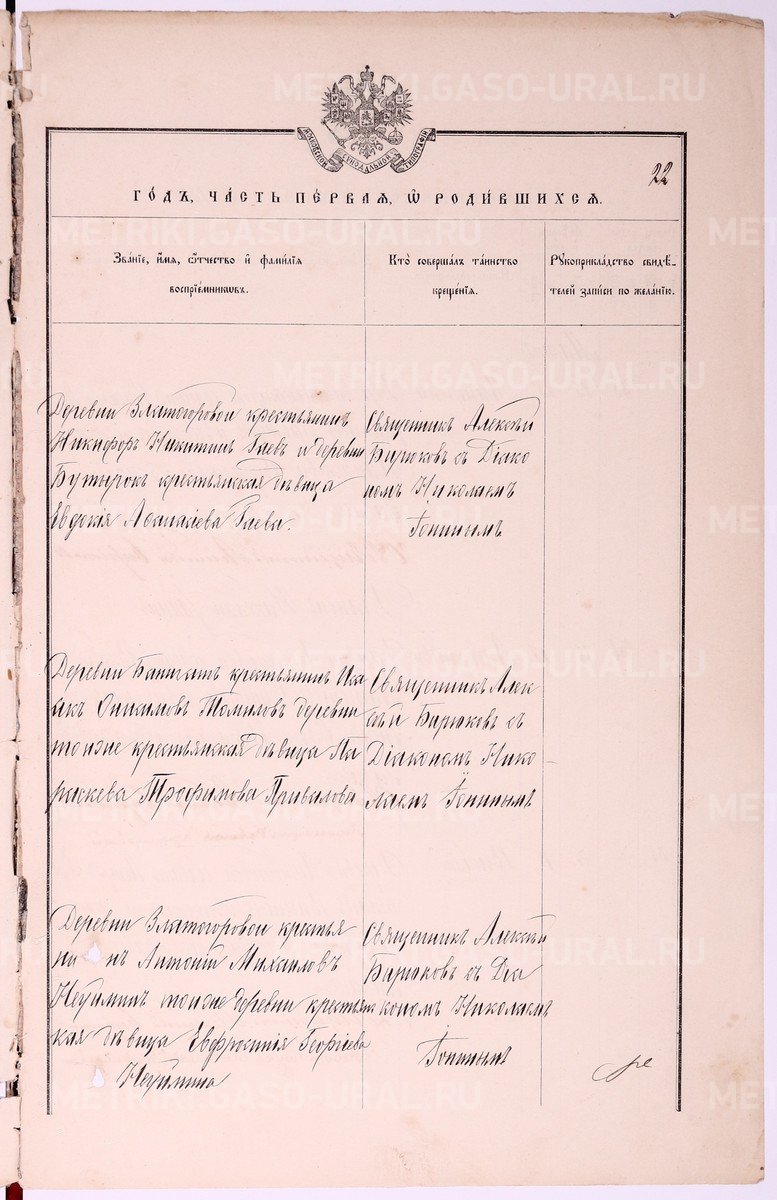 METRIKI.GASO-URAL.RU
МОСКОВСКОЙ СѴНОДАЛЬНОЙ ТИПОГРАФІИ
22
ГОДЪ, ЧАСТЬ ПЕРВАЯ, Ѡ РОДИВШИХСЯ.
Званіе, имя, ѻтчество и фамилія
воспріемникѡвъ.
Кто совершалъ таинство
крещенія.
Рꙋкоприкладство свидѣ-
телей записи по желанію.
Деревни Златогоровой крестьянинъ
Никифоръ Никитинъ Гаевъ и деревни
Бутырокъ крестьянская дѣвица
Евдокія Аѳанасіева Гаева.
Священникъ Алексѣй
Бирюковъ съ Діако
номъ Николаемъ
Гонинымъ
Деревни крестьянинъ Иса
акъ Онисимовъ Томиловъ деревни
тоиже крестьянская дѣвица Па
раскева Трофимова Привалова
Священникъ Алек
сѣй Бирюковъ съ
Діакономъ Нико-
лаемъ Гонинымъ
Деревни Златогоровой крестья
ни нъ Антоній Михаиловъ
Неуйминъ тоиже деревни крестьянс
кая дѣвица Евфросинія Георгіева
Неуймина
Священникъ Алексѣй
Бирюковъ съ Діа
кономъ Николаемъ
Гонинымъ